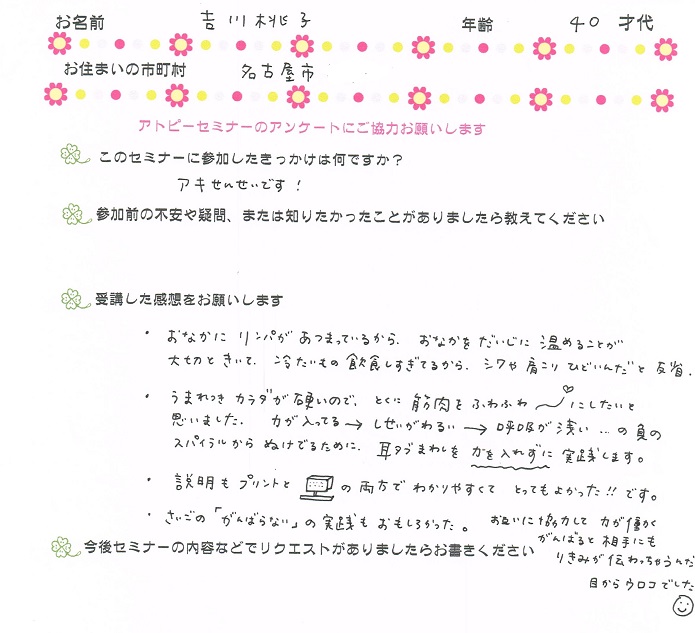 お名前 吉川桃子 年齢 40 才代
お住まいの市町村 名古屋市
アトピーセミナーのアンケートにご協力お願いします
このセミナーに参加したきっかけは何ですか？
アキせんせいです！
参加前の不安や疑問、または知りたかったことがありましたら教えてください
受講した感想をお願いします
・ おなかに リンパが あつまっているから、おなかを だいじに 温めることが
大切ときいて、冷たいもの 飲食しすぎてるから、シワや 肩こり ひどいんだと 反省。
・ うまれつき カラダが 硬いので、とくに 筋肉を ふわふわ にしたいと
思いました。 力が入ってる → しせいがわるい → 呼吸が浅い …の 負の
スパイラルから ぬけでるために、耳タブまわしを 力を入れずに 実践します。
・ 説明も プリントと の 両方で わかりやすくて とってもよかった!! です。
・ さいごの「がんばらない」の 実践も おもしろかった。 お互いに協力して 力が働く
がんばると 相手にも
りきみが 伝わっちゃうんだ
目からウロコでした
今後セミナーの内容などでリクエストがありましたらお書きください